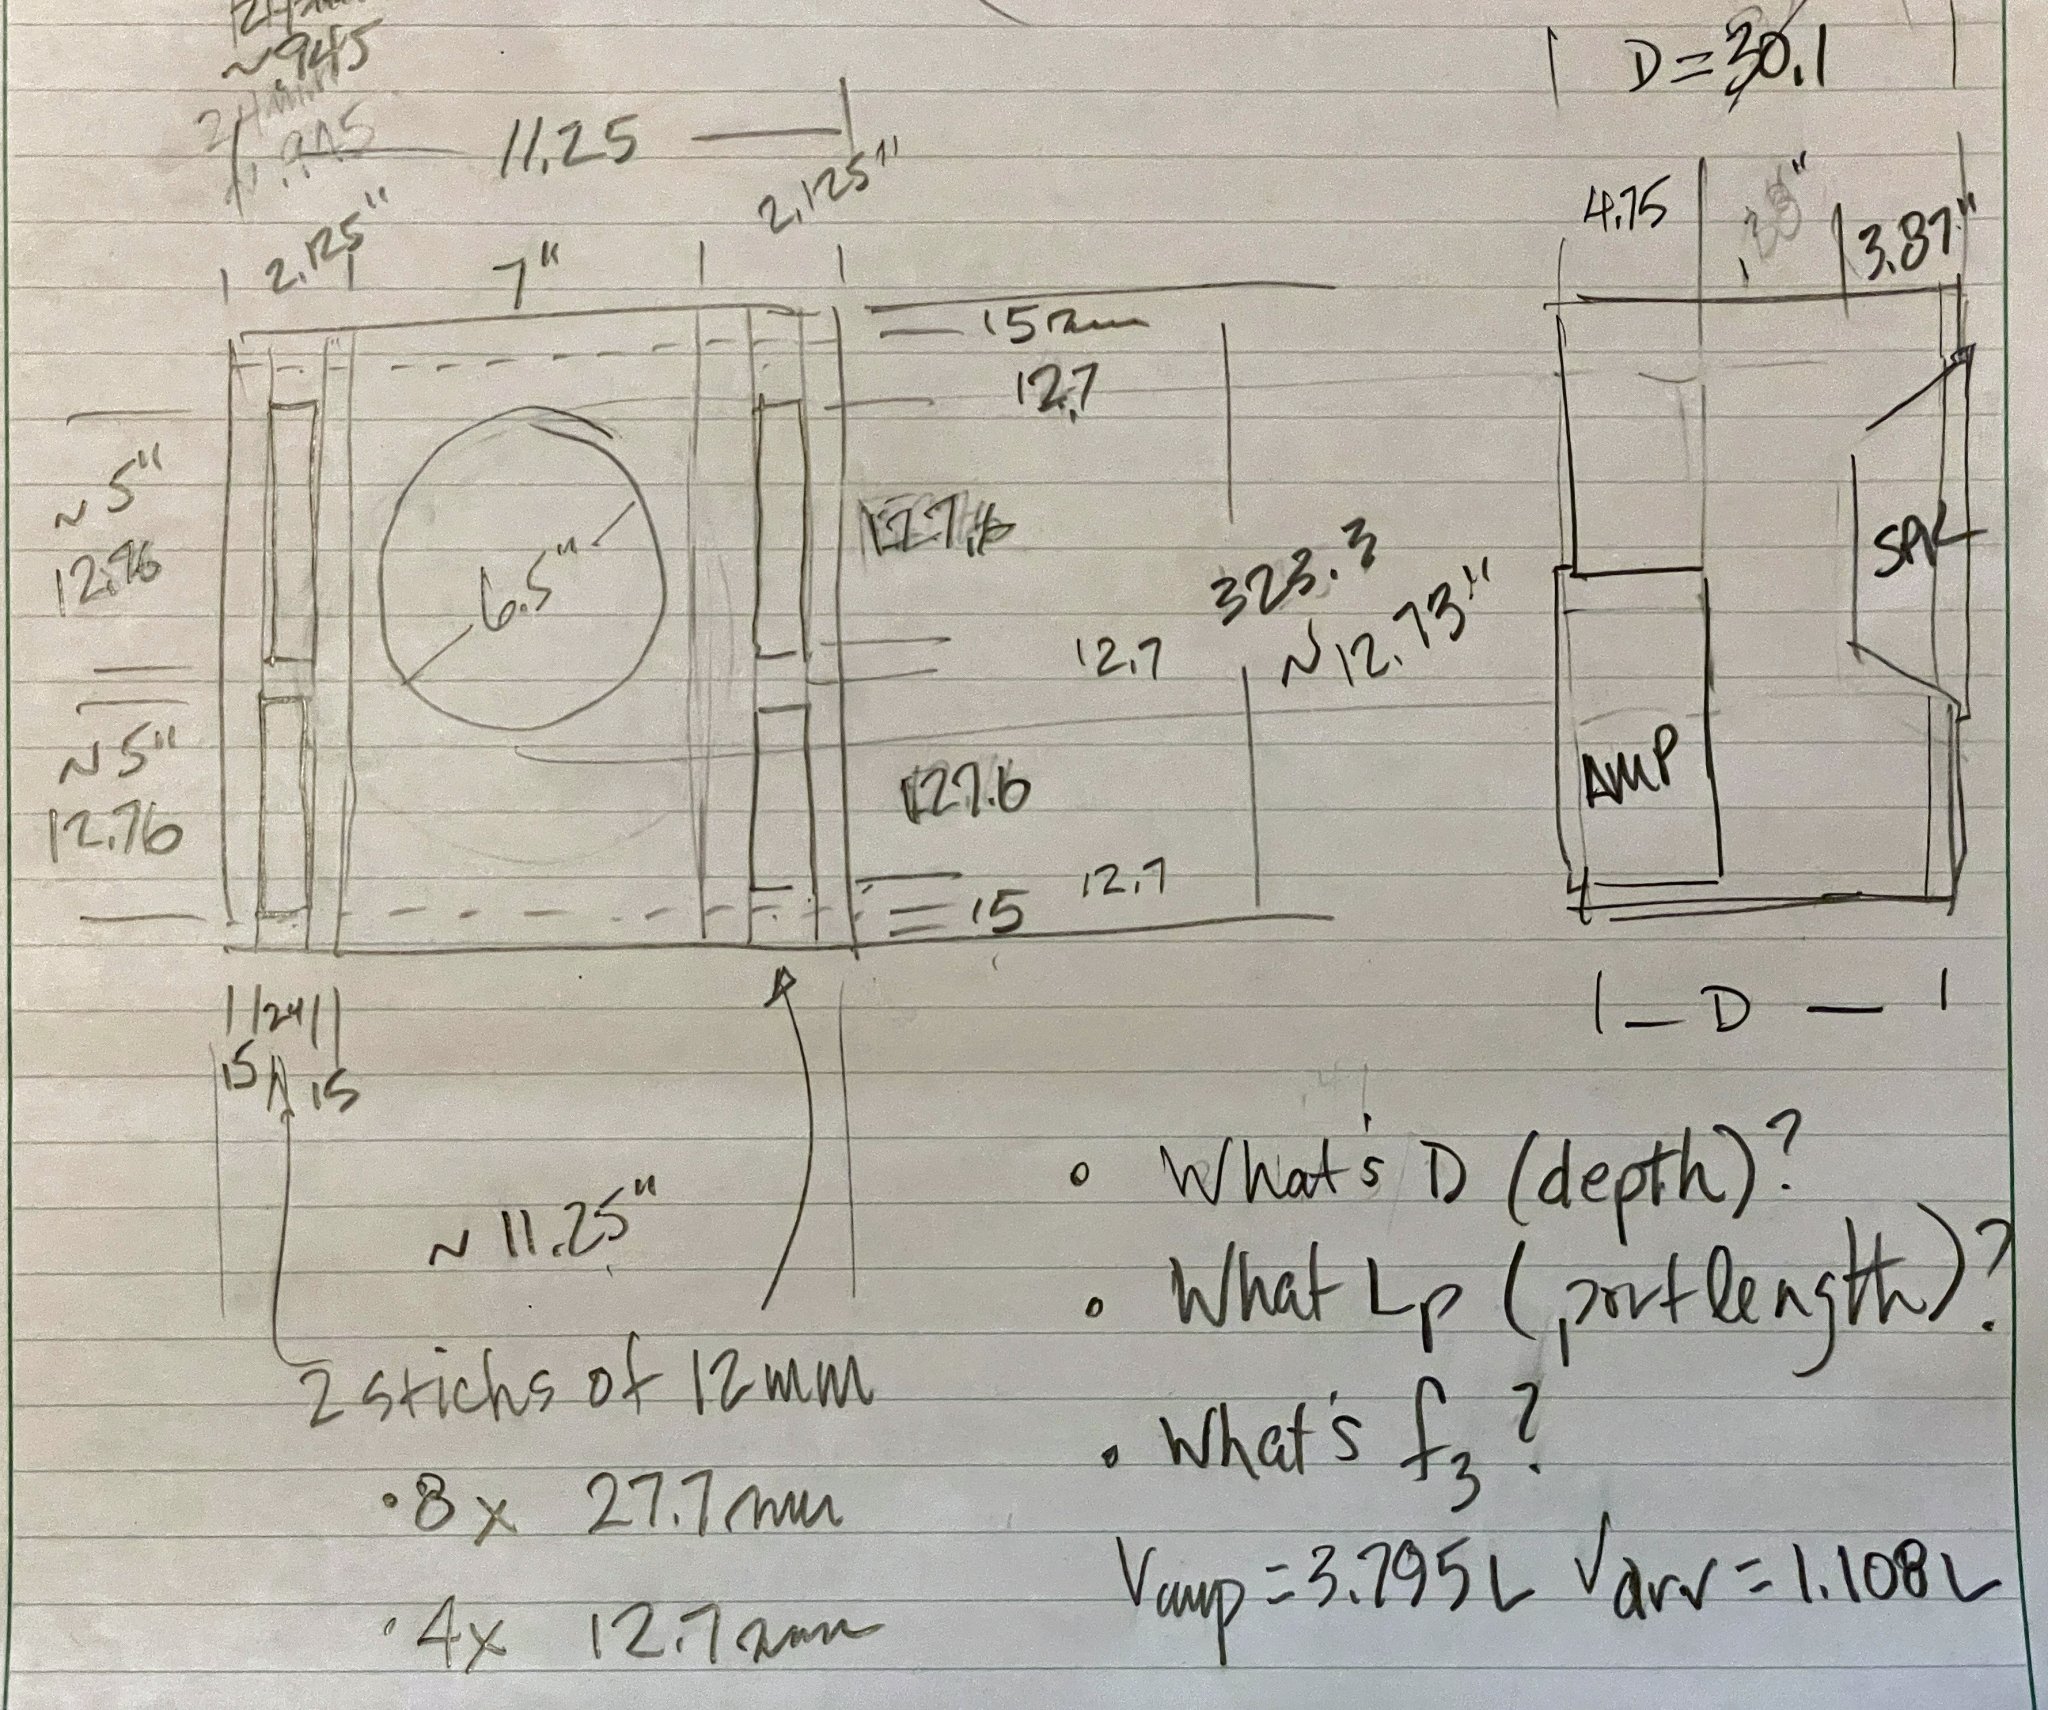 ~945
24mm
.945
11.25
D=30.1
2.125"
7"
2.125"
4.75
.38"
3.87"
15mm
12.7
~5"
12.76
6.5"
127.6
323.3
~12.73"
12.7
SPK
~5"
12.76
127.6
AMP
12.7
15
24
15
15
D
~11.25"
2 sticks of 12mm
• 8x 27.7mm
• 4x 12.7mm
• What's D (depth)?
• What Lp (port length)?
• What's f3?
Vamp=3.795L Vdrv=1.108L